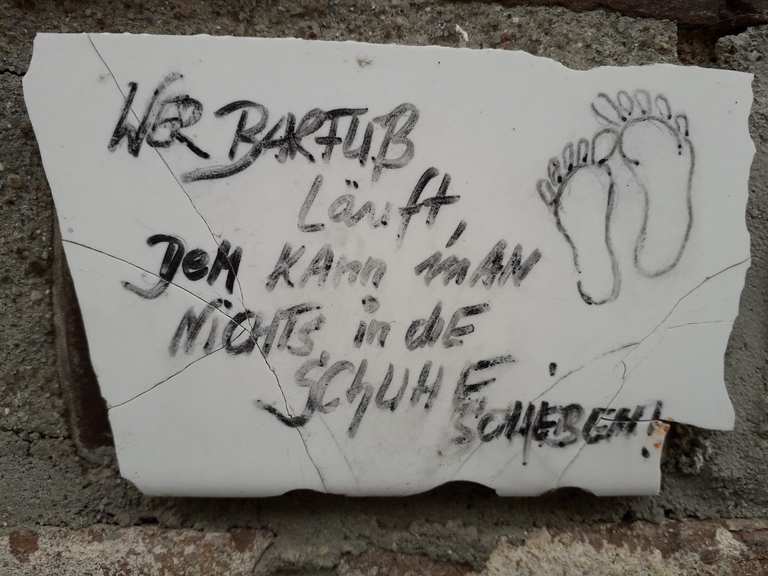 WER BARFUß
Läuft,
DEM KAnn mAN
NiCHTS in diE
SCHUHE
SCHIEBEN!